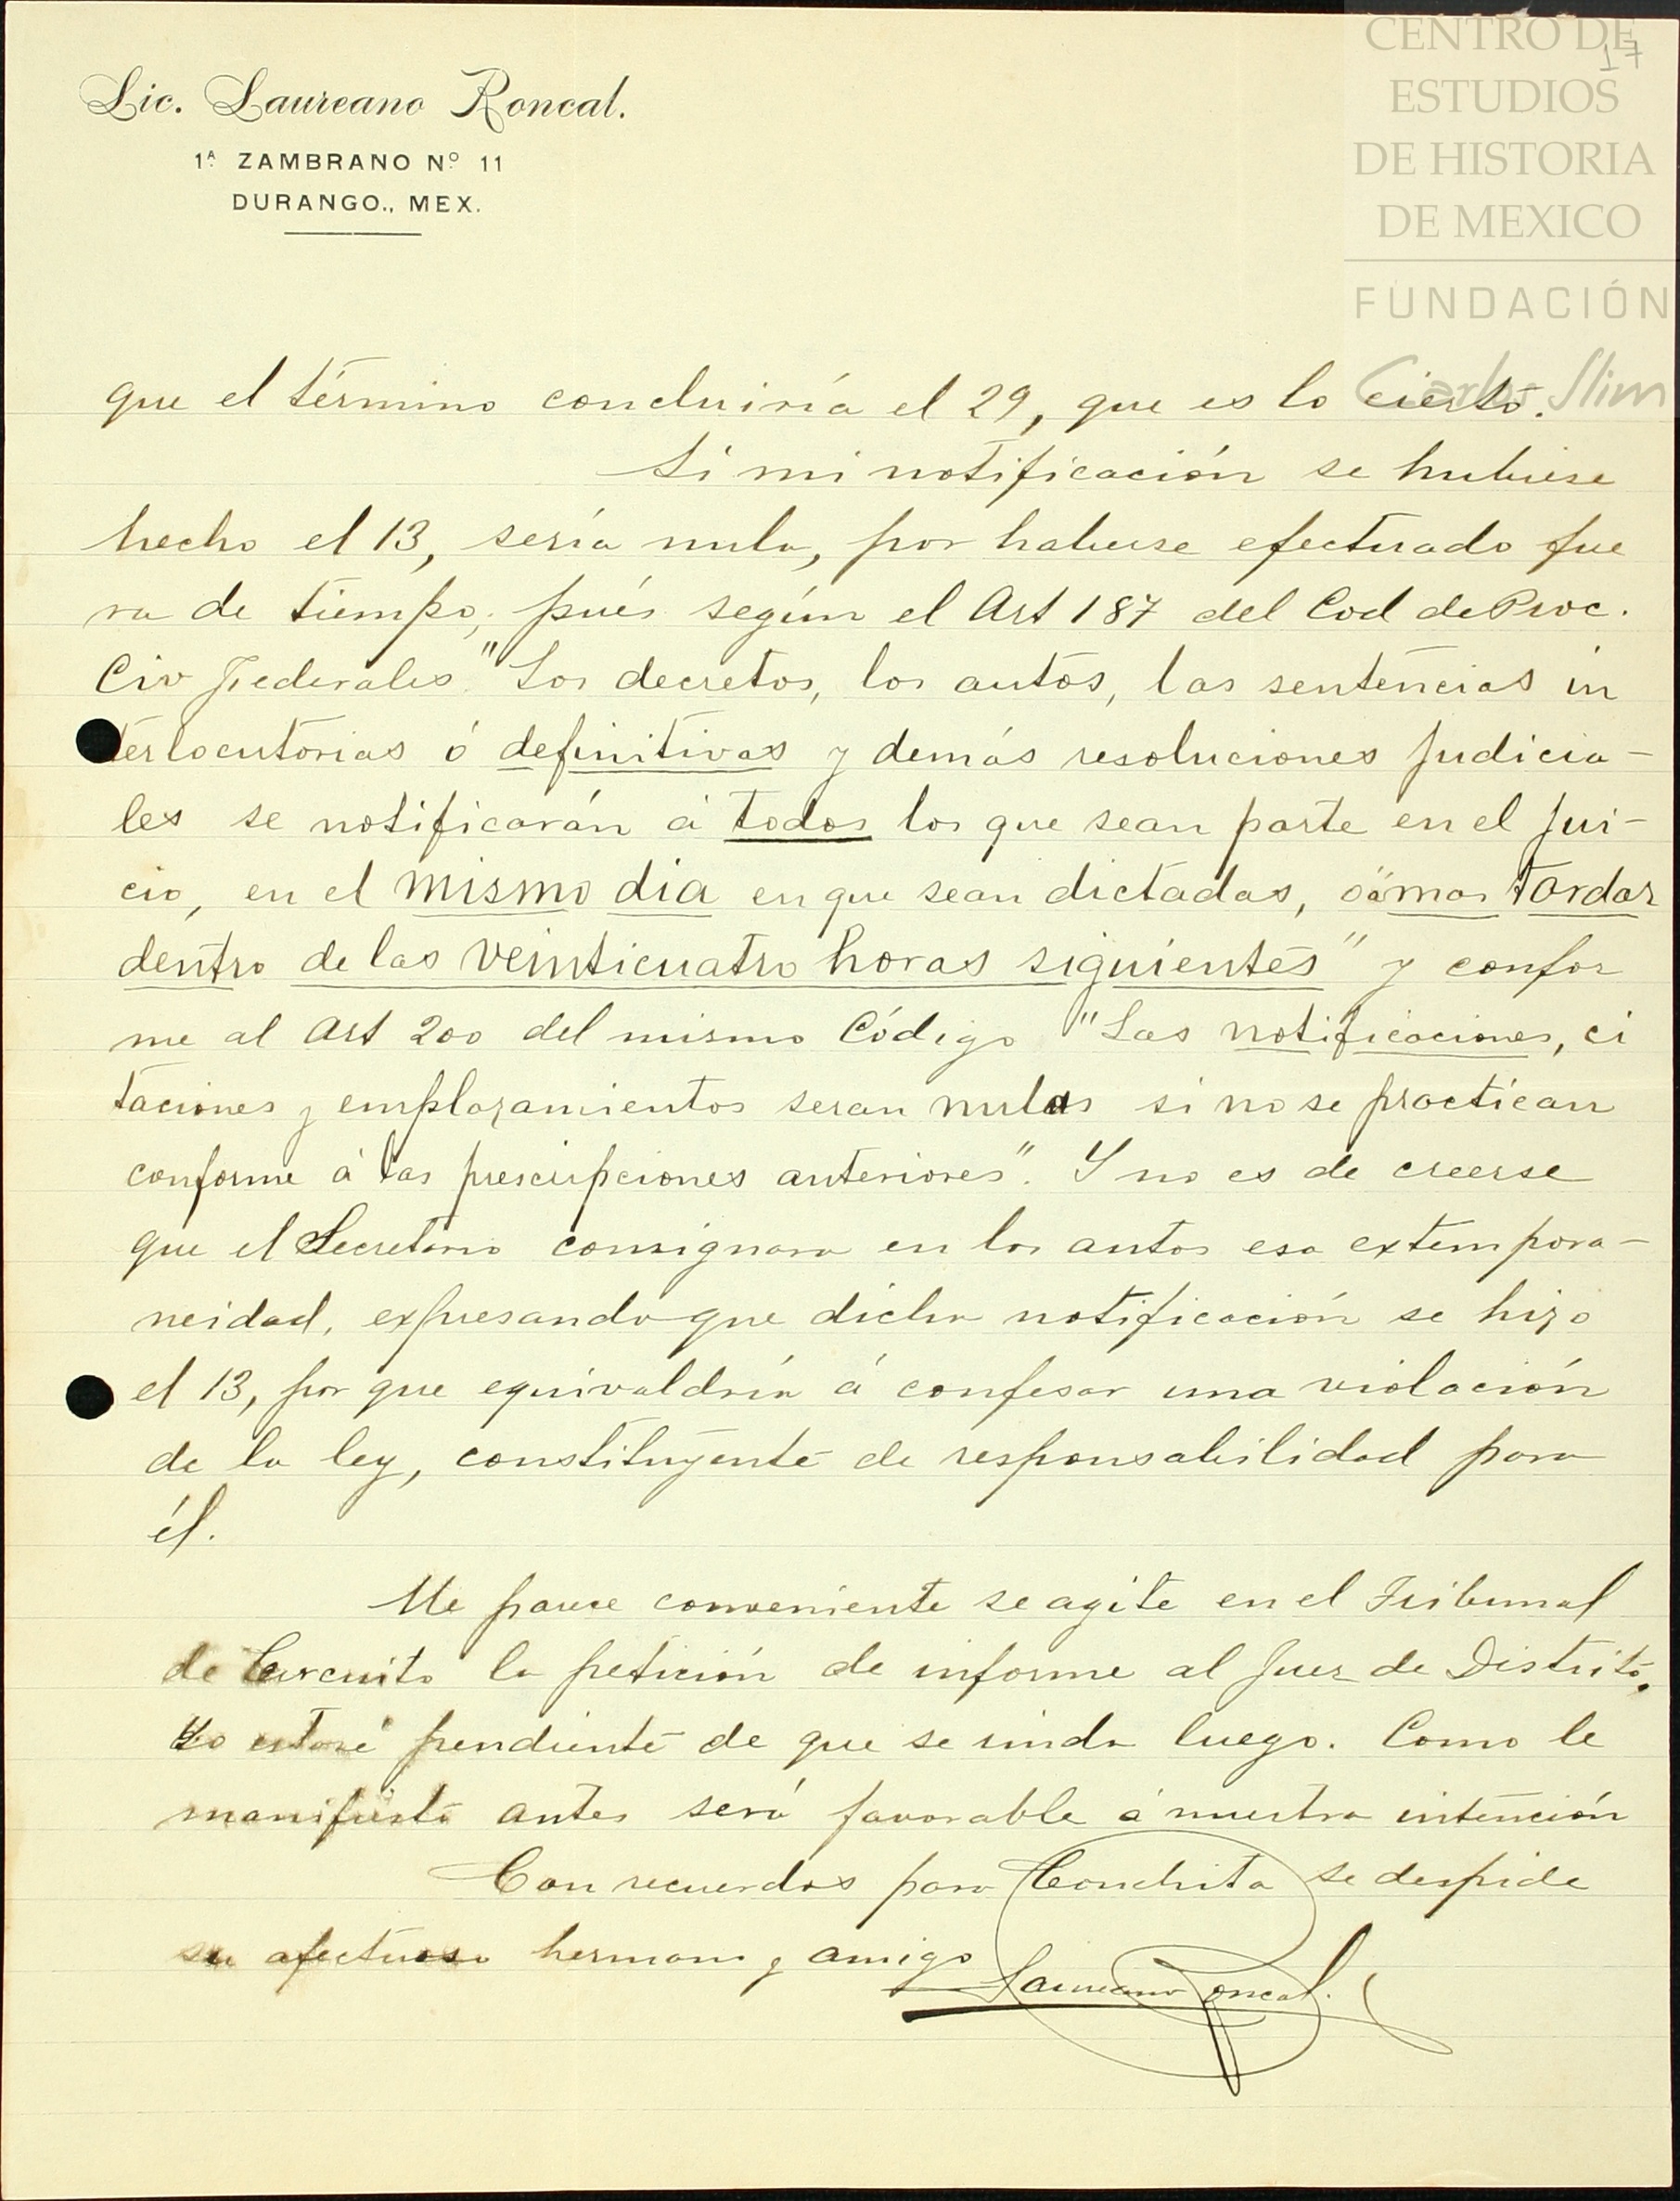 Lic. Laureano Roncal.
1ª ZAMBRANO Nº 11
DURANGO., MEX.
CENTRO DE
17
ESTUDIOS
DE HISTORIA
DE MEXICO
FUNDACIÓN
Carlos Slim
que el término concluiría el 29, que es lo cierto.
Si mi notificación se hubiese
hecho el 13, sería nula, por haberse efectuado fue
ra de tiempo, pués según el Art 187 del Cod de Proc.
Civ Federales "Los decretos, los autos, las sentencias in
terlocutorias ó definitivas y demás resoluciones judicia-
les se notificarán á todos los que sean parte en el jui-
cio, en el mismo dia en que sean dictadas, ó á mas tardar
dentro de las veinticuatro horas siguientes" y confor
me al Art 200 del mismo Código "Las notificaciones, ci
taciones y emplazamientos seran nulas si no se practican
conforme á las prescripciones anteriores". Y no es de creerse
que el Secretario consignara en los autos esa extempora-
neidad, expresando que dicha notificación se hizo
el 13, por que equivaldría á confesar una violación
de la ley, constituyente de responsabilidad para
él.
Me parece conveniente se agite en el Tribunal
de Circuito la petición de informe al Juez de Distrito.
Yo estaré pendiente de que se rinda luego. Como le
manifiesto antes será favorable á nuestra intención
Con recuerdos para Conchita se despide
su afectuoso hermano y amigo
Laureano Roncal.